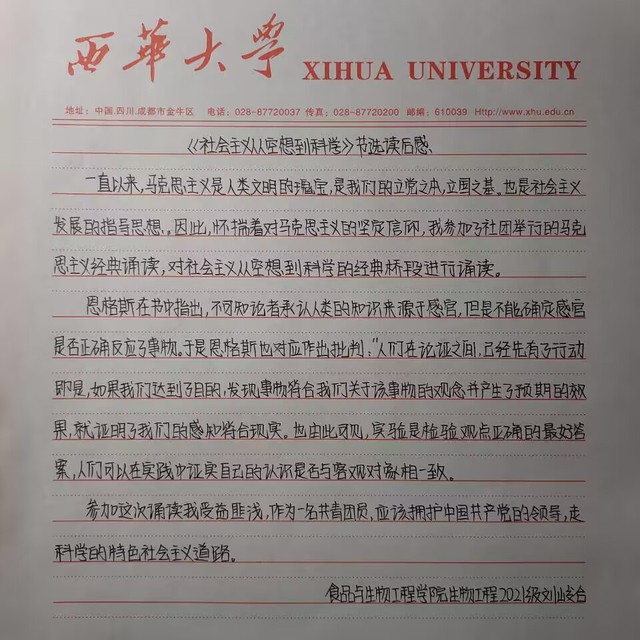 西華大学 XIHUA UNIVERSITY
地址：中国.四川.成都市金牛区 电话：028-87720037 传真：028-87720200 邮编：610039 Http://www.xhu.edu.cn
《社会主义从空想到科学》节选读后感
一直以来，马克思主义是人类文明的瑰宝，是我们的立党之本，立国之基。也是社会主义
发展的指导思想。因此，怀揣着对马克思主义的坚定信仰，我参加了社团举行的马克
思主义经典诵读，对社会主义从空想到科学的经典桥段进行诵读。
恩格斯在书中指出，不可知论者承认人类的知识来源于感官，但是不能确定感官
是否正确反应了事物。于是恩格斯也对应作出批判："人们在论证之间，已经先有了行动
即是，如果我们达到了目的，发现事物符合我们关于该事物的观念并产生了预期的效
果，就证明了我们的感知符合现实。也由此可见，实验是检验观点正确的最好答
案，人们可以在实践中证实自己的认识是否与客观对象相一致。
参加这次诵读我受益匪浅，作为一名共青团员，应该拥护中国共产党的领导，走
科学的特色社会主义道路。
食品与生物工程学院生物工程2021级刘